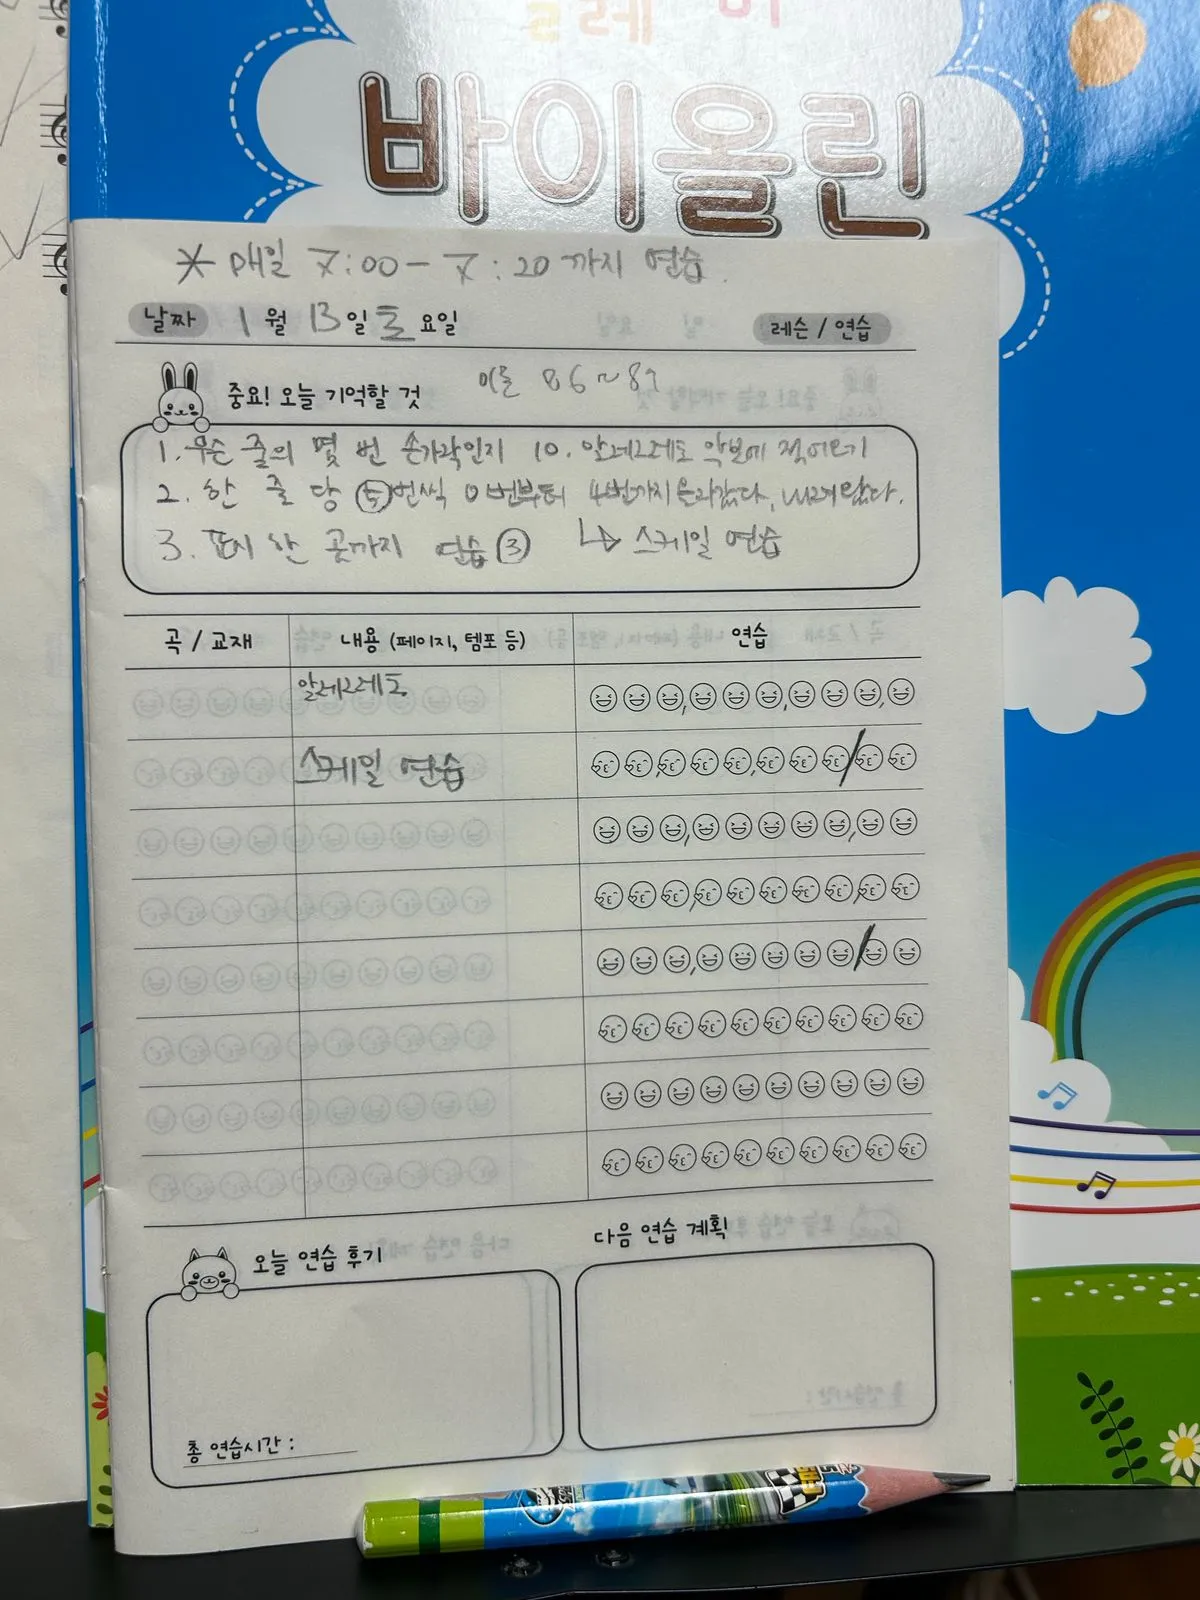 바이올린
* 매일 7:00 - 7:20 까지 연습
날짜 1 월 13 일 토 요일 레슨 / 연습
중요! 오늘 기억할 것 이론 86~87
1. 무슨 줄의 몇 번 손가락인지 10. 알레그레토 악보에 적어오기
2. 한 줄 당 ⑤번씩 0번부터 4번까지
3. 표시 한 곳까지 연습 ③ ↳ 스케일 연습
곡 / 교재 내용 (페이지, 템포 등) 연습
알레그레토
스케일 연습
오늘 연습 후기 다음 연습 계획
총 연습시간 :